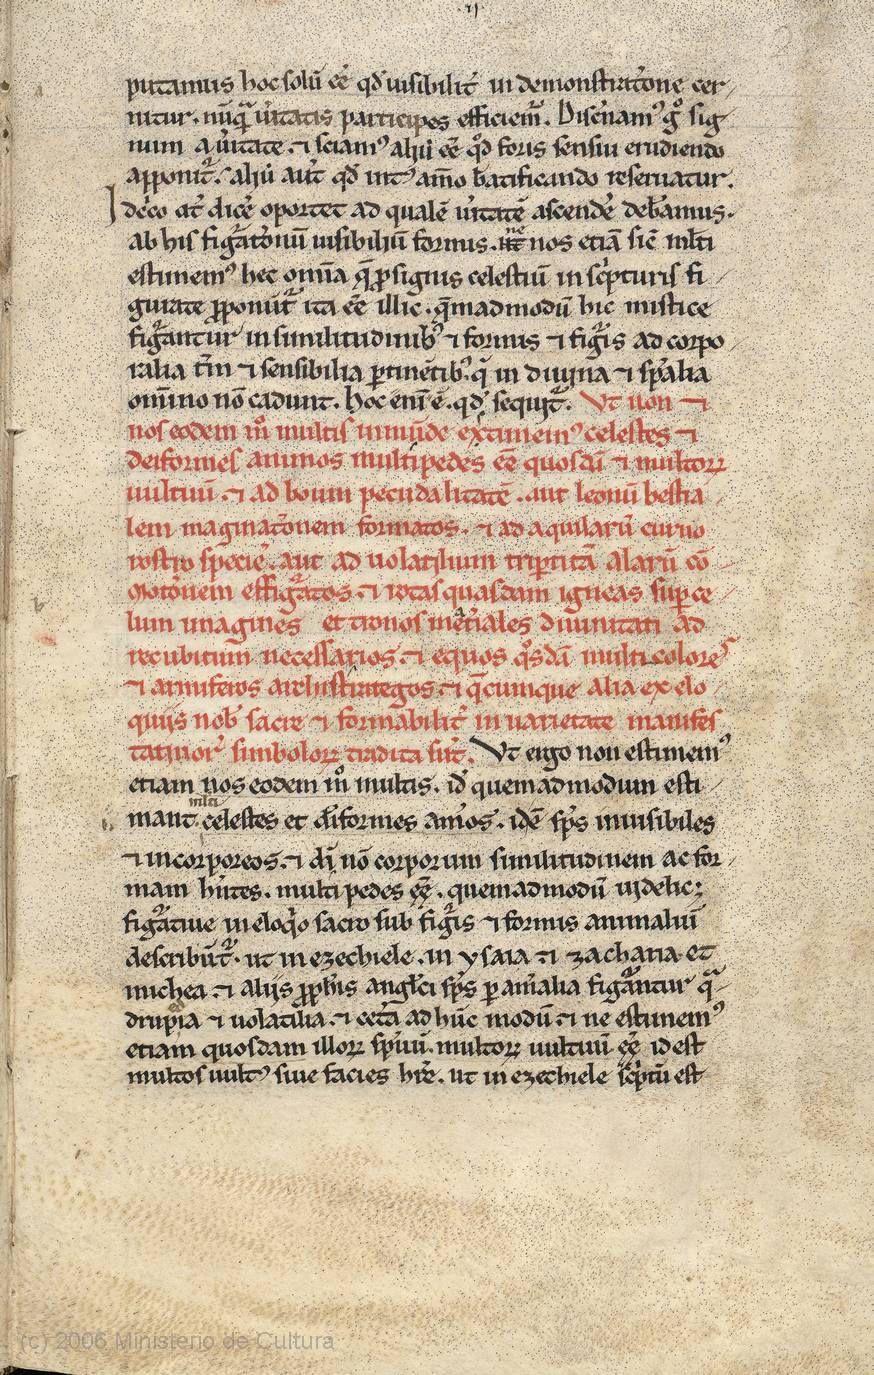 ij
putamus hoc solū eē̄ qđ uisibilit̄ in demonstrat̄one cer
nitur. nūq̄ ū̄itatis participes efficiem̄. Disc̄nam⁹ gͦ sig
num a ū̄itate. ⁊ sciam⁹ aliū eē̄ qͦđ foris sensiu erudiendo
apponit̄. aliū aūt qđ int⁹ aīo b̄atificando reseruatur.
Ideͦco at̄ dic̄e oportet ad qualē ū̄itatē ascend̄e deb̄amus.
ab his figᷓat̄onū uisibiliū formis. ne nos etiā sic̄ ml̄ti
estimem⁹ hec om̄ia q̄ ꝑ signis celestiū in sc̄pturis fi
gurate ꝓponūt̄ ita eē̄ illic. q̄madmodū hic mistice
figᷓantur in similitudinib⁹ ⁊ formis ⁊ figᷓis ad corpo
ralia t̄m ⁊ sensibilia ꝑtinētib⁹. q̄ in diuina ⁊ sp̄alia
om̄ino nō cadunt. hoc eni̅ ē. qđ sequit̄. Vt non ⁊
nos eodem mͦ multis inmūde extimem⁹ celestes ⁊
deiformes animos multipedes eē̄ quosdā ⁊ multoꝝ
uultuū. ⁊ ad boum pecudalitatē. aut leonū bestia
lem imaginat̄onem formatos. ⁊ ad aquilarū curuo
rostro speciē. aut ad uolatilium triꝑtitā alarū cō
motōnem effigᷓatos. ⁊ rotas quasdam igneas suꝑ ce
lum imagines et tronos mat̄iales diuinitati ad
recubitum necessarios. ⁊ equos qͦsdā multicolores
⁊ armiferos archistrategos. ⁊ q̄cumque alia ex elo
quiis nob̄ sacre ⁊ formabilit̄ in uarietate manifes
tatiuoꝝ simboloꝝ tradita sūt. Vt ergo non estimem⁹
etiam nos eodem mͦ multis. id̄ quemadmodum esti
ml̄ti
mant celestes et dīformes aīos. idē sp̄s inuisibiles
⁊ incorporeos. ⁊ di nō corporum similitudinem ac for
mam h̄ntes. multipedes eē̄. quemadmodū uidelicꝫ
figᷓatiue in eloqͥo sacro sub figᷓis ⁊ formis animaliū
describūt̄. ut in ezechiele. in ysaia ⁊ zacharia et
michea. ⁊ aliis ꝓph̄is angl̄ici sp̄s ꝑ aīalia figᷓantur qᷓ
drupia ⁊ uolatilia. ⁊ cet̄a ad hūc modū. ⁊ ne estimem⁹
etiam quosdam illoꝝ sp̄uū. multoꝝ uultuū eē̄ id est
multos uult⁹ siue facies hr̄e. ut in ezechiele sc̄ptū est
(c) 2006 Ministerio de Cultura